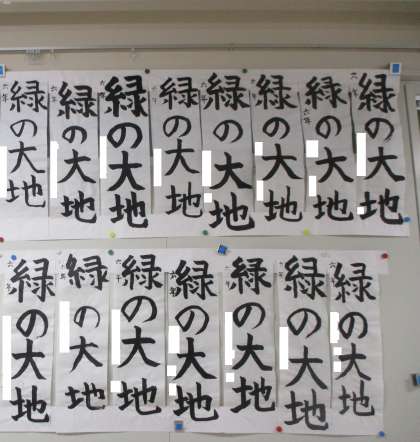 緑の大地
六年
緑の大地
六年
緑の大地
六年
緑の大地
六年
緑の大地
六年
緑の大地
六年
緑の大地
六年
緑の大地
六年
緑の大地
六年
緑の大地
六年
緑の大地
六年
緑の大地
六年
緑の大地
六年
緑の大地
六年
緑の大地
六年